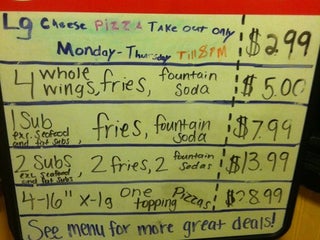 Lg Cheese Pizza Take out only
Monday-Thursday Till 8PM $2.99
4 whole wings, fries, fountain soda $5.00
1 Sub exc. Seafood and fat subs, fries, fountain soda $7.99
2 Subs exc. Seafood and fat subs, 2 fries, 2 fountain sodas $13.99
4-16" X-lg one topping Pizzas $28.99
See menu for more great deals!